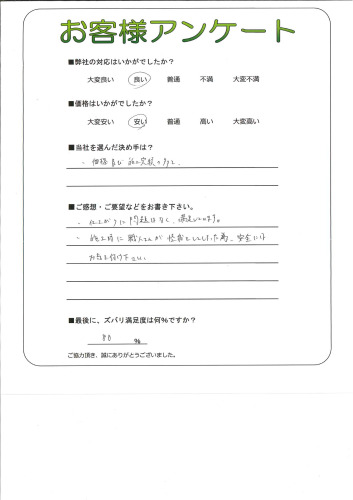 お客様アンケート
■弊社の対応はいかがでしたか?
大変良い 良い 普通 不満 大変不満
■価格はいかがでしたか?
大変安い 安い 普通 高い 大変高い
■当社を選んだ決め手は?
・価格及び施工実績の多さ。
■ご感想・ご要望などをお書き下さい。
・仕上がりに問題はなく、満足しています。
・施工時に職人さんが怪我をしました為、安全には
お気を付け下さい。
■最後に、ズバリ満足度は何%ですか?
80 %
ご協力頂き、誠にありがとうございました。